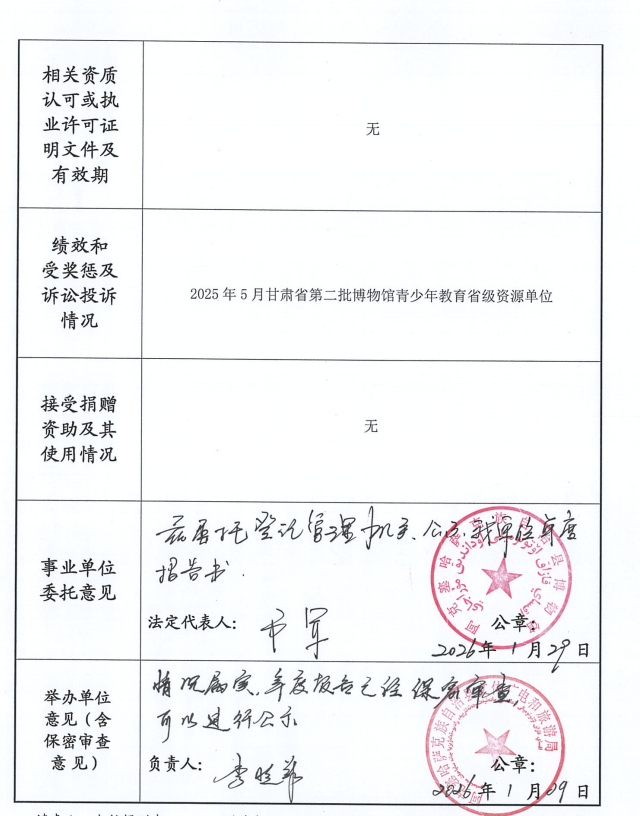 相关资质
认可或执
业许可证
明文件及
有效期
无
绩效和
受奖惩及
诉讼投诉
情况
2025年5月甘肃省第二批博物馆青少年教育省级资源单位
接受捐赠
资助及其
使用情况
无
事业单位
委托意见
兹委托登记管理机关公示我单位年度
报告书.
法定代表人：
公章：
2026年1月29日
举办单位
意见（含
保密审查
意见）
情况属实，年度报告已经保密审查，
可以进行公示
负责人：
公章：
2026年1月29日